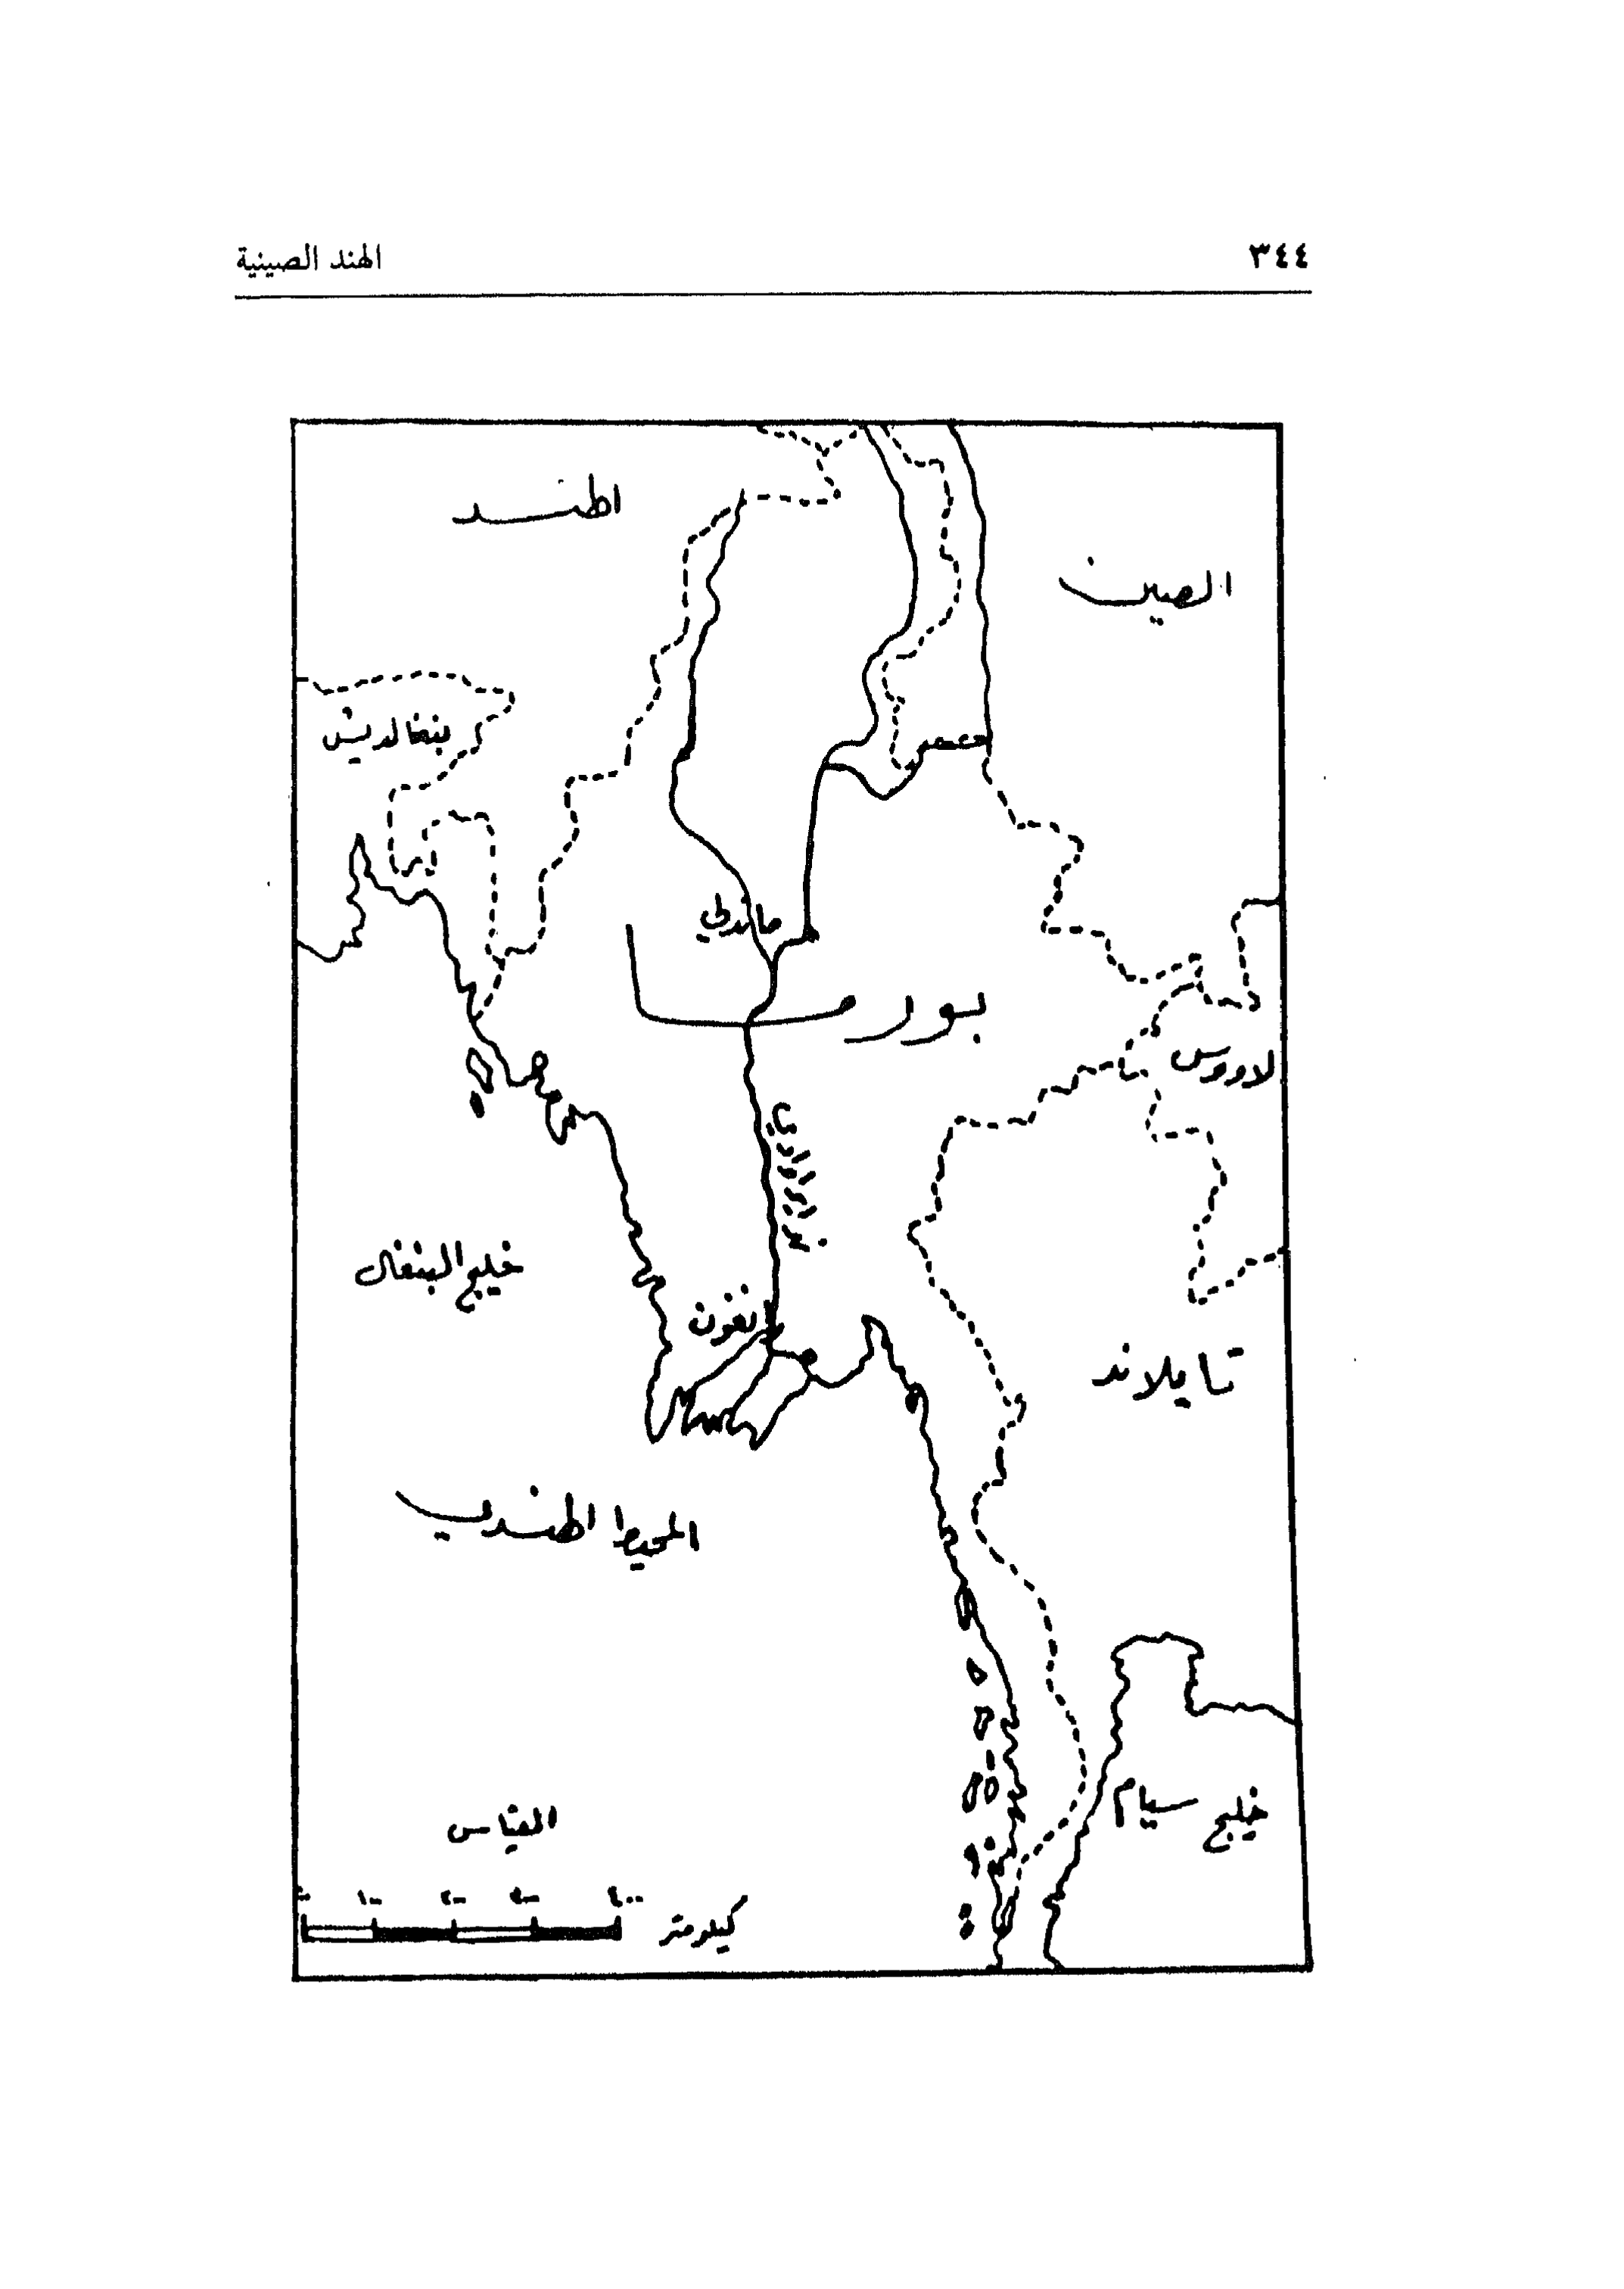 ٣٤٤
الهند الصينية
الهند
الصين
بنغالديش
ماندلي
بورما
لاووس
خليج البنغال
رانغون
تايلاند
المحيط الهندي
خليج سيام
المقياس
٠ ١٠٠ ٢٠٠ ٣٠٠ ٤٠٠
كيلومتر